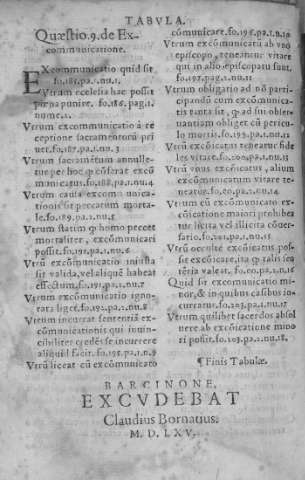 TABVLA.
Quæstio.9.de Ex-
communicatione.
Excommunicatio quid sit
fo.185.pa.1.nu.1.
Vtrum ecclesia hac possit
pœna punire. fo.186.pag.1.
nume.1.
Vtrum excōmunicatio à re
ceptione sacramentorū pri
uet.fo.187.pa.1.nu.3
Vtrum sacramētum annulle-
tur per hoc q̃ cōferat excō
municatus.fo.188.pa.1.nu.4
Vtrum causa excomunica-
tionis sit peccatum morta-
le.fo.189.pa.1.nu.5
Vtrum statim q̃ homo peccet
mortaliter, excōmunicari
possit.fo.191.pa.1.nu.6
Vtrū excōmunicatio iniusta
sit valida,vel aliquē habeat
effectum.fo.191.pa.1.nu.7
Vtrum excōmunicatio igno-
rata liget.fo.195.pa.1.nu.8
Vtrum incurrat sententiā ex-
cōmunicationis qui inuin-
cibiliter credēs se incurrere
aliquid facit.fo.195.pa.1.n.9
Vtrū liceat cū excōmunicato
cōmunicare.fo.196.pa.1.n.10
Vtrum excōmunicatū ab vno
episcopo, teneantur vitare
qui in alio episcopatu sunt.
fo.197.pag.1.nu.11
Vtrum obligatio ad nō parti-
cipandū com excōmunica-
tis tanta sit, q̃ ad sui obser
uantiam obliget cū pericu-
lo mortis.fo.199.pa.1.nu.12
Vtrū excōicatus teneatur fide
les vitare.fo.200.pa.1.nu.13
Vtrū vnus excōicatus, alium
excōmunicatum vitare te-
neatur.fo.200.pa.1.nu.14
Vtrum cū excōmunicato ex-
cōicatione maiori prohibea
tur licita vel illicita cōuer-
satio.fo.201.pa.1.nu.15
Vtrū occulte excōicatus pos-
sit excōicare,ita q̃ talis sen
tētia valeat.
Quid sit excomunicatio mi-
nor,& in quibus casibus in-
curratur.fo.203.pa.1.nu.17
Vtrum quilibet sacerdos absol
uere ab excōicatione mino
ri possit.fo.203.pa.1.nu.18.
¶ Finis Tabulæ.
BARCINONE,
EXCVDEBAT
Claudius Bornatius.
M. D. LXV.